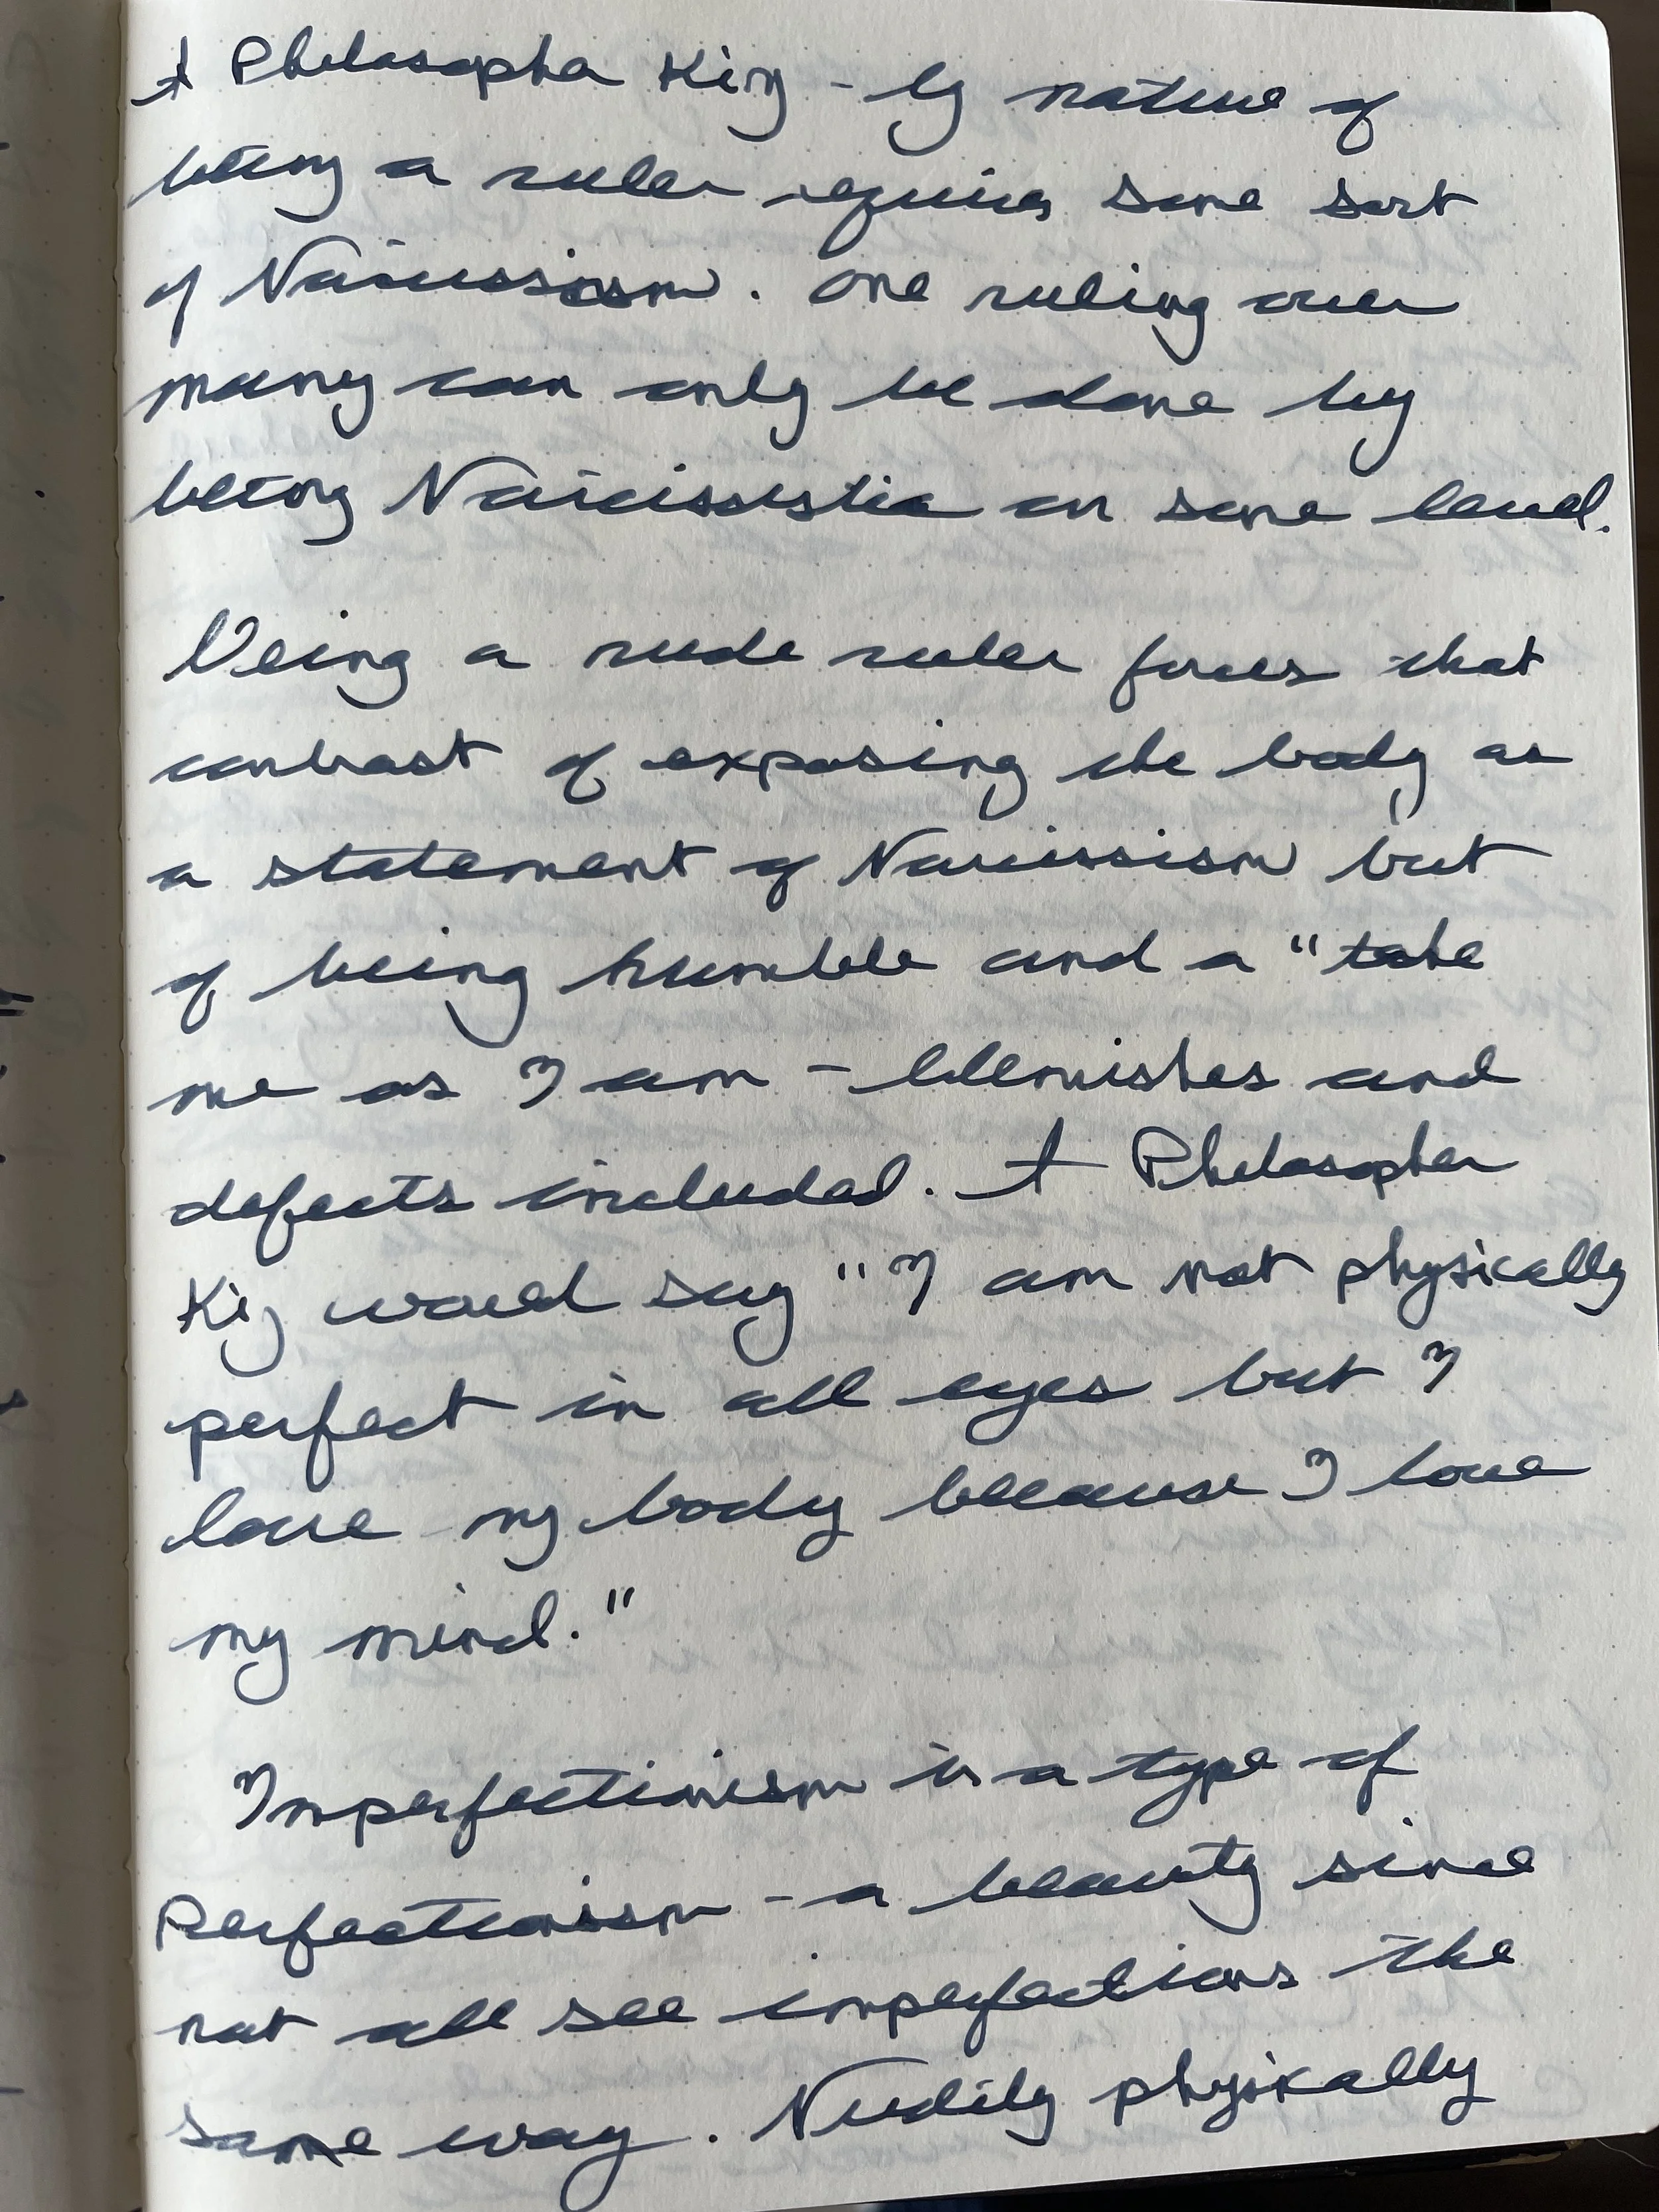 A Philosopher King - by nature of
being a ruler requires some sort
of Narcissism. One ruling over
many can only be done by
being Narcissistic on some level.
Being a nude ruler forces that
contrast of exposing the body as
a statement of Narcissism but
of being humble and a "take
me as I am - blemishes and
defects included. A Philosopher
King would say "I am not physically
perfect in all eyes but I
love my body because I love
my mind."
Imperfectionism is a type of
Perfectionism - a beauty since
not all see imperfections the
same way. Nudity physically